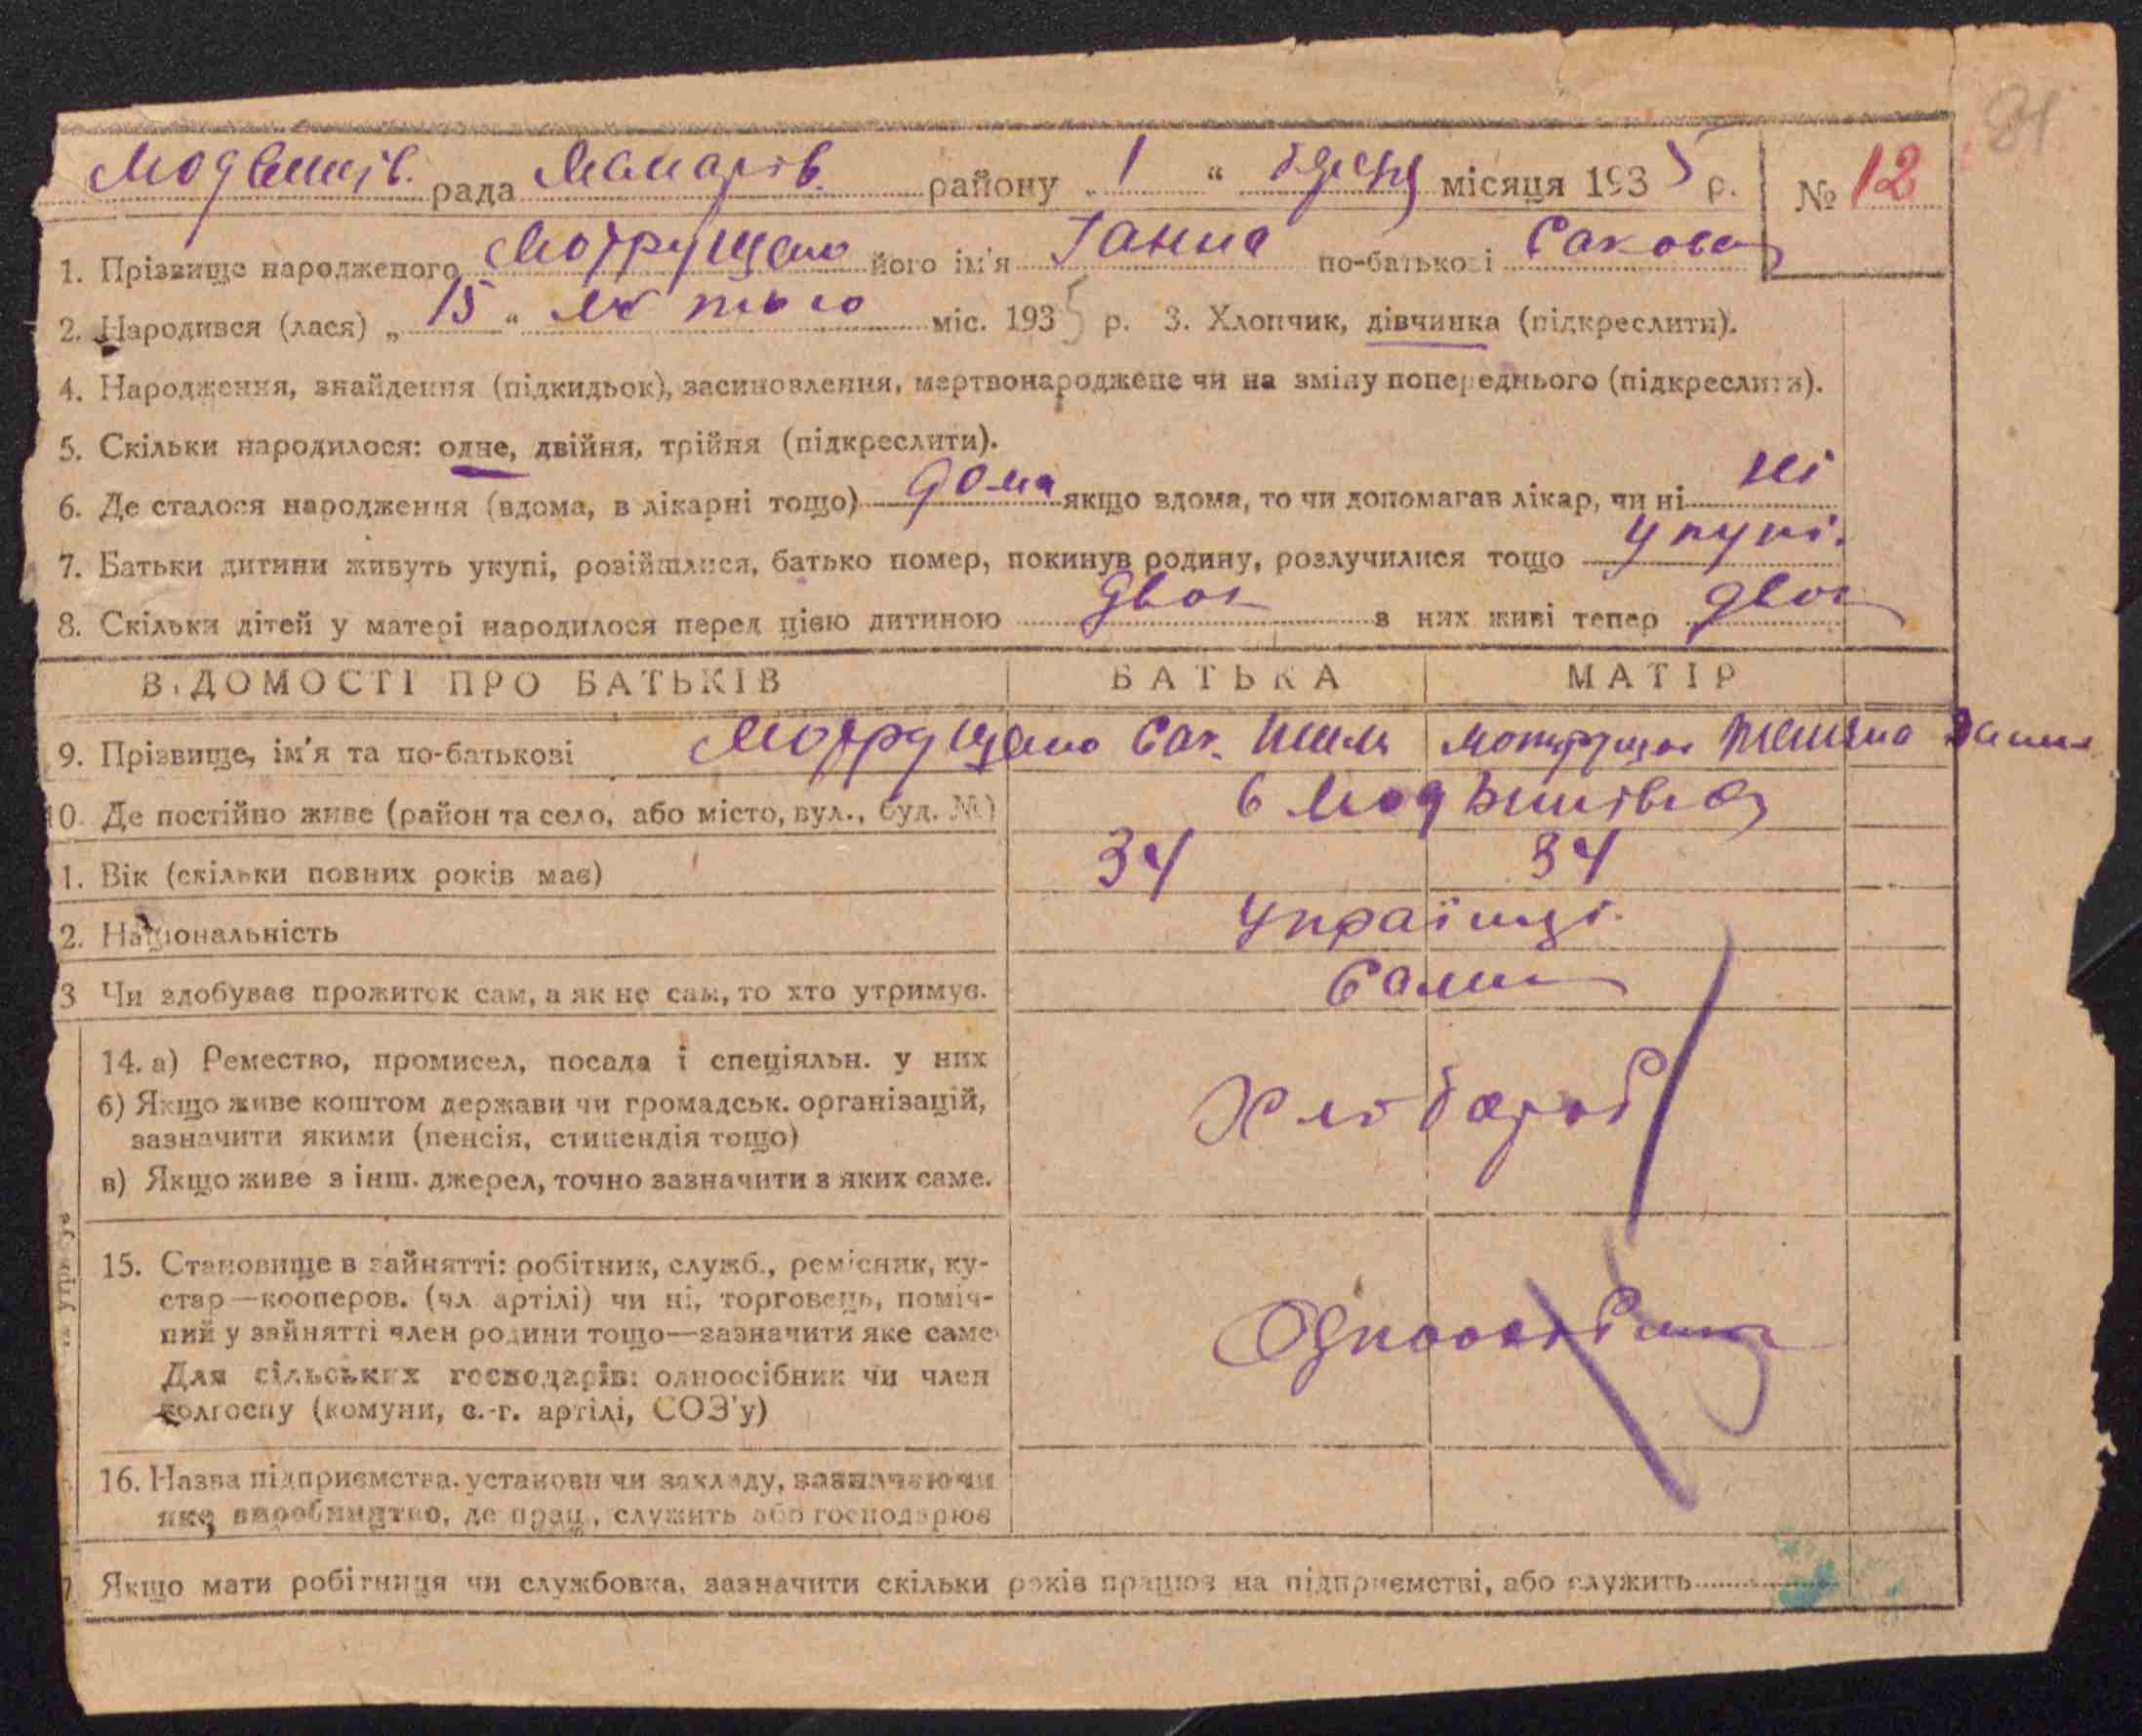 рада району „ 1 “ місяця 1935 р. № 12
1. Прізвище народженого його ім'я Ганна по-батькові
2. Народився (лася) „ 15 “ лютого міс. 1935 р. 3. Хлопчик, дівчинка (підкреслити).
4. Народження, знайдення (підкидьок), засиновлення, мертвонароджене чи на зміну попереднього (підкреслити).
5. Скільки народилося: одне, двійня, трійня (підкреслити).
6. Де сталося народження (вдома, в лікарні тощо) дома якщо вдома, то чи допомагав лікар, чи ні ні
7. Батьки дитини живуть укупі, розійшлися, батько помер, покинув родину, розлучилися тощо укупі.
8. Скільки дітей у матері народилося перед цією дитиною двоє з них живі тепер двоє
ВІДОМОСТІ ПРО БАТЬКІВ БАТЬКА МАТІР
9. Прізвище, ім'я та по-батькові
10. Де постійно живе (район та село, або місто, вул., буд. №)
1. Вік (скільки повних років має) 34 34
2. Національність Українці.
3 Чи здобуває прожиток сам, а як не сам, то хто утримує. Сами
14. а) Ремество, промисел, посада і спеціяльн. у них
б) Якщо живе коштом держави чи громадськ. організацій,
зазначити якими (пенсія, стипендія тощо)
Хлібороб
в) Якщо живе з інш. джерел, точно зазначити з яких саме.
15. Становище в зайнятті: робітник, служб., ремісник, ку-
стар—кооперов. (чл артілі) чи ні, торговець, поміч-
ний у зайнятті член родини тощо—зазначити яке саме
Для сільських господарів: одноосібник чи член
колгоспу (комуни, с.-г. артілі, СОЗ'у)
16. Назва підприємства, установи чи закладу, зазначаючи
яке виробництво, де прац., служить або господарює
7 Якщо мати робітниця чи службовка, зазначити скільки років працює на підприємстві, або служить